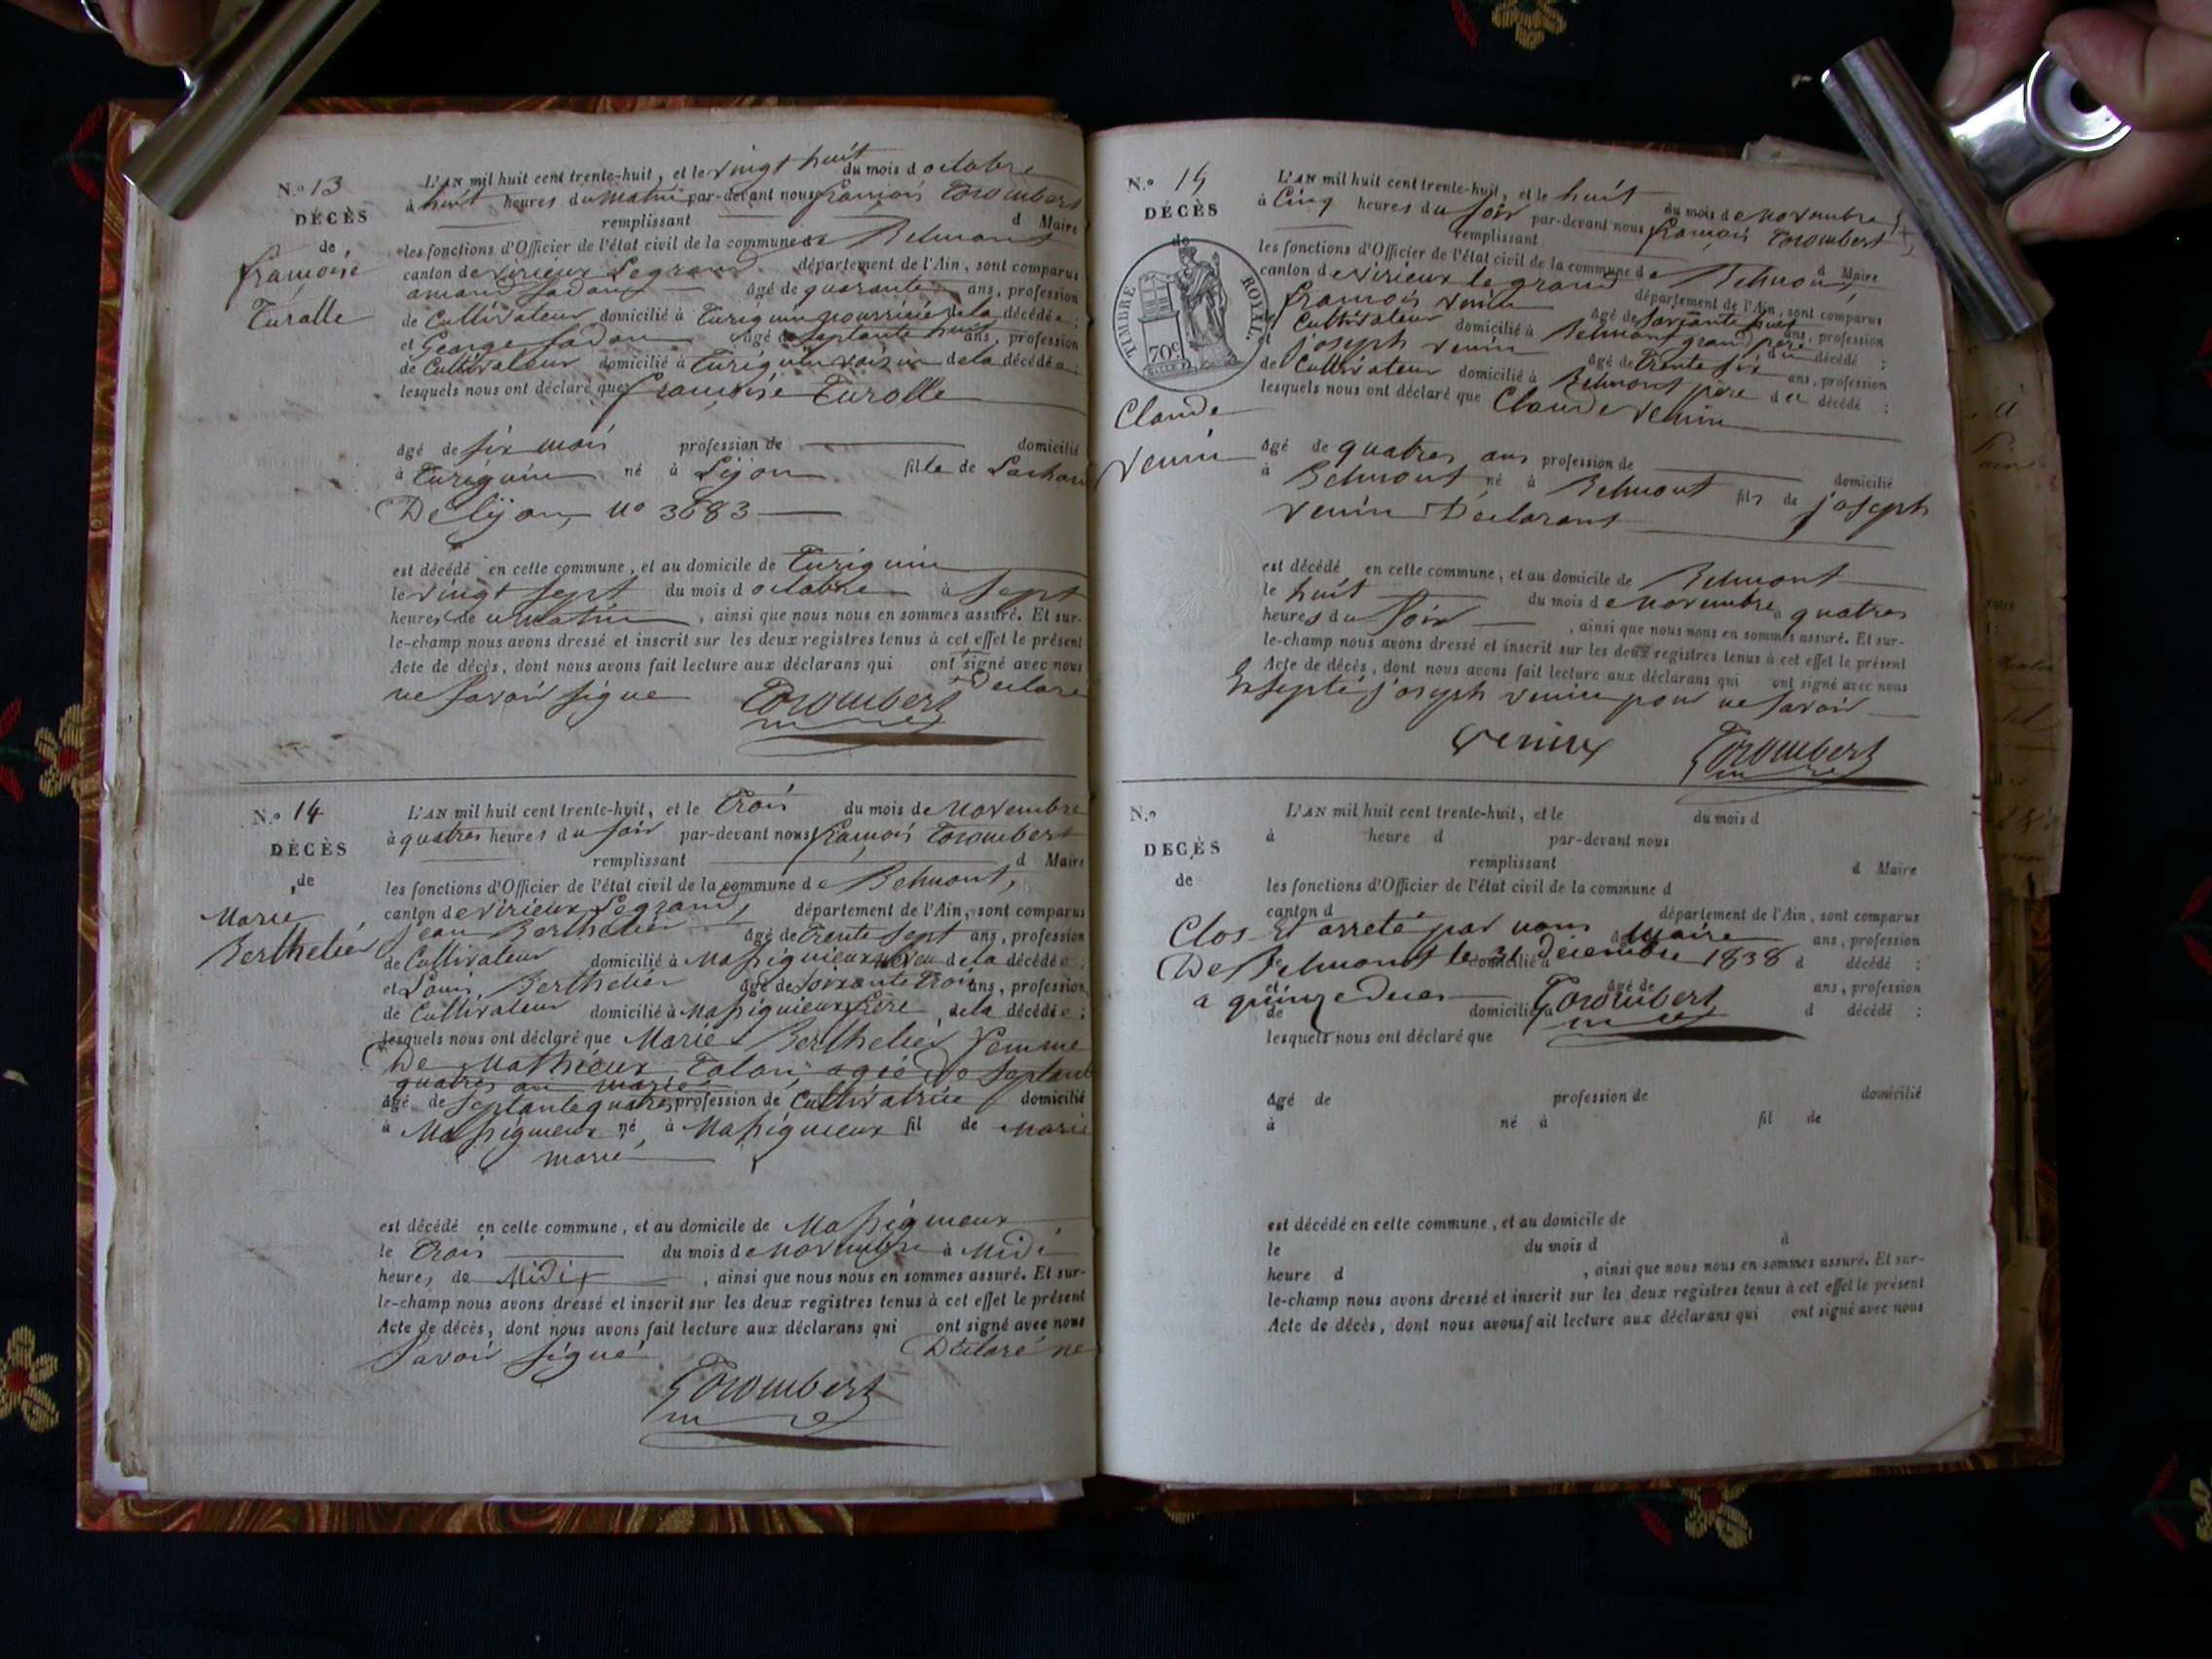 N.º 13
DÉCÈS
de
françoise
Turolle
L'AN mil huit cent trente-huit, et le vingt huit du mois d octobre
à huit heures du matin par-devant nous françois Trombert
remplissant d Maire
les fonctions d'Officier de l'état civil de la commune de Belmont
canton de virieux Legrand département de l'Ain, sont comparus
amand fadon âgé de quarante ans, profession
de Cultivateur domicilié à Turignin nourricier de la décédée ;
et George fadon âgé de septante huit ans, profession
de Cultivateur domicilié à Turignin voisin de la décédée ;
lesquels nous ont déclaré que françoise Turolle
âgé de six mois profession de domicilié
à Turignin né à Lijon fille de
De lijon no 3683
est décédé en cette commune, et au domicile de Turignin
le vingt sept du mois d octobre à sept
heures de matin, ainsi que nous nous en sommes assuré. Et sur-
le-champ nous avons dressé et inscrit sur les deux registres tenus à cet effet le présent
Acte de décès, dont nous avons fait lecture aux déclarans qui ont signé avec nous
Declare
ne savoir signe Trombert
N.º 14
DÉCÈS
de
Marie
Berthelier
L'AN mil huit cent trente-huit, et le trois du mois de Novembre
à quatres heures du soir par-devant nous françois Trombert
remplissant d Maire
les fonctions d'Officier de l'état civil de la commune de Belmont,
canton de virieux Legrand, département de l'Ain, sont comparus
jean Berthelier âgé de trente sept ans, profession
de Cultivateur domicilié à Massignieux neveu de la décédée ;
et Louis Berthelier âgé de soixante trois ans, profession
de Cultivateur domicilié à Massignieux frère de la décédée ;
lesquels nous ont déclaré que Marie Berthelier femme
De Mathieux Talon agée de septante
quatres an marie
âgé de septante quatres profession de Cultivatrice domicilié
à Massignieux né à Massignieux fil de Marie
marié
est décédé en cette commune, et au domicile de Massignieux
le trois du mois de Novembre à Midi
heures de Midi, ainsi que nous nous en sommes assuré. Et sur-
le-champ nous avons dressé et inscrit sur les deux registres tenus à cet effet le présent
Acte de décès, dont nous avons fait lecture aux déclarans qui ont signé avec nous
Déclaré ne
savoir signé
Trombert
N.º 15
DÉCÈS
de
TIMBRE ROYAL.
70c.
Claude
Venin
L'AN mil huit cent trente-huit, et le huit du mois de Novembre
à Cinq heures du soir par-devant nous françois Trombert
remplissant d Maire
les fonctions d'Officier de l'état civil de la commune de Belmont,
canton de virieux le grand département de l'Ain, sont comparus
françois venin âgé de soixante huit ans, profession
Cultivateur domicilié à Belmont grand père du décédé ;
et joseph venin âgé de trente six ans, profession
de Cultivateur domicilié à Belmont père du décédé ;
lesquels nous ont déclaré que Claude Venin
âgé de quatres ans profession de domicilié
à Belmont né à Belmont fils de joseph
venin Déclarant
est décédé en cette commune, et au domicile de Belmont
le huit du mois de Novembre à quatres
heures du soir, ainsi que nous nous en sommes assuré. Et sur-
le-champ nous avons dressé et inscrit sur les deux registres tenus à cet effet le présent
Acte de décès, dont nous avons fait lecture aux déclarans qui ont signé avec nous
Exsepté joseph venin pour ne savoir
venin Trombert
N.º
DÉCÈS
de
L'AN mil huit cent trente-huit, et le du mois d
à heure d par-devant nous
remplissant d Maire
les fonctions d'Officier de l'état civil de la commune d
canton d département de l'Ain, sont comparus
Clos Et arreté par nous Maire
âgé de ans, profession
De Belmont le 31 Decembre 1838
de domicilié à d décédé :
et âgé de ans, profession
a quinze Deces Trombert
de domicilié à d décédé :
lesquels nous ont déclaré que
âgé de profession de domicilié
à né à fil de
est décédé en cette commune, et au domicile de
le du mois d à
heure d , ainsi que nous nous en sommes assuré. Et sur-
le-champ nous avons dressé et inscrit sur les deux registres tenus à cet effet le présent
Acte de décès, dont nous avons fait lecture aux déclarans qui ont signé avec nous